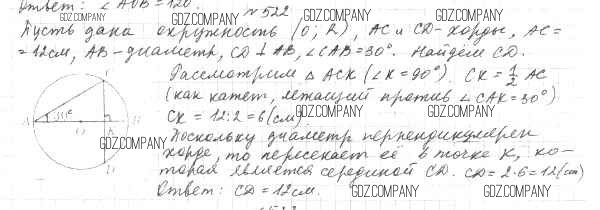 Ответ: ∠AOB = 120°
№ 522
GDZ.COMPANY GDZ.COMPANY
Пусть дана окружность (O; R), AC и CD - хорды, AC =
= 12см, AB - диаметр, CD ⊥ AB, ∠CAB = 30°. Найдем CD.
GDZ.COMPANY GDZ.COMPANY
Рассмотрим △ ACK (∠K = 90°). CK = 1/2 AC
(как катет, лежащий против ∠CAK = 30°)
CK = 12:2 = 6 (см)
GDZ.COMPANY GDZ.COMPANY GDZ.COMPANY
Поскольку диаметр перпендикулярен
хорде, то пересекает её в точке K, ко-
торая является серединой CD. CD = 2·6 = 12 (см)
Ответ: CD = 12см.
GDZ.COMPANY GDZ.COMPANY
C
A 30° O K B
D